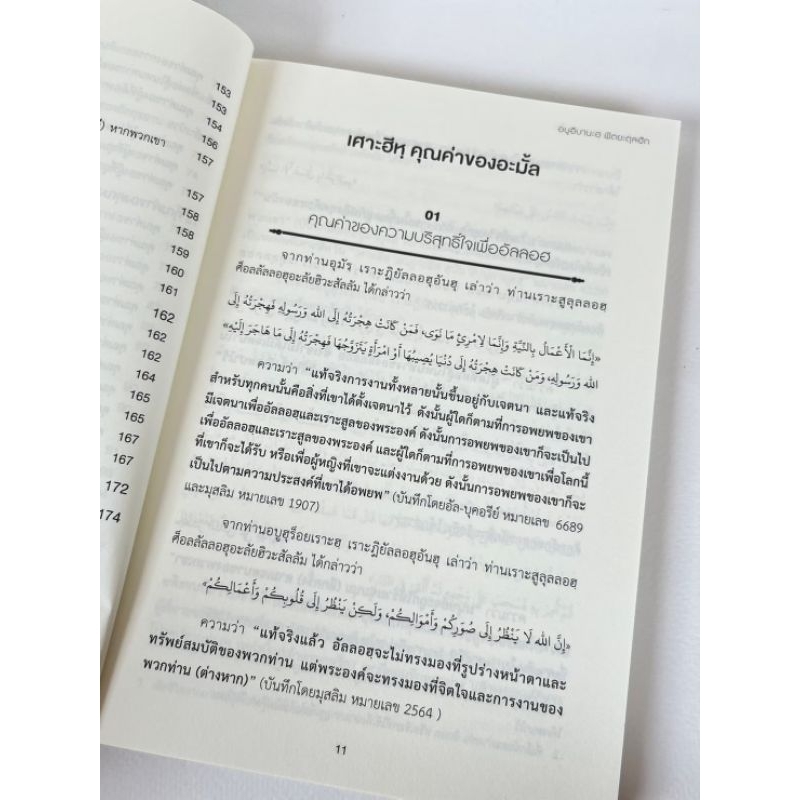 153
153
154
156
หากพวกเขา
157
157
158
158
159
160
161
162
162
164
165
165
167
167
172
174
อบูอิบานะฮ ฟิตยะตุลฮัก
เศาะฮีหฺ คุณค่าของอะมั้ล
01
คุณค่าของความบริสุทธิ์ใจเพื่ออัลลอฮฺ
จากท่านอุมัรฺ เราะฎิยัลลอฮุอันฮุ เล่าว่า ท่านเราะสูลุลลอฮฺ
ศ็อลลัลลอฮุอะลัยฮิวะสัลลัม ได้กล่าวว่า
«إِنَّمَا الْأَعْمَالُ بِالنِّيَّةِ وَإِنَّمَا لِامْرِئٍ مَا نَوَى، فَمَنْ كَانَتْ هِجْرَتُهُ إِلَى اللهِ وَرَسُولِهِ فَهِجْرَتُهُ إِلَى
اللهِ وَرَسُولِهِ، وَمَنْ كَانَتْ هِجْرَتُهُ إِلَى دُنْيَا يُصِيبُهَا أَوْ امْرَأَةٍ يَتَزَوَّجُهَا فَهِجْرَتُهُ إِلَى مَا هَاجَرَ إِلَيْهِ»
ความว่า “แท้จริงการงานทั้งหลายนั้นขึ้นอยู่กับเจตนา และแท้จริง
สำหรับทุกคนนั้นคือสิ่งที่เขาได้ตั้งเจตนาไว้ ดังนั้นผู้ใดก็ตามที่การอพยพของเขา
มีเจตนาเพื่ออัลลอฮฺและเราะสูลของพระองค์ ดังนั้นการอพยพของเขาก็จะเป็นไป
เพื่ออัลลอฮฺและเราะสูลของพระองค์ และผู้ใดก็ตามที่การอพยพของเขาเพื่อโลกนี้
ที่เขาก็จะได้รับ หรือเพื่อผู้หญิงที่เขาจะแต่งงานด้วย ดังนั้นการอพยพของเขาก็จะ
เป็นไปตามความประสงค์ที่เขาได้อพยพ” (บันทึกโดยอัล-บุคอรีย์ หมายเลข 6689
และมุสลิม หมายเลข 1907)
จากท่านอบูฮุร็อยเราะฮฺ เราะฎิยัลลอฮุอันฮุ เล่าว่า ท่านเราะสูลุลลอฮฺ
ศ็อลลัลลอฮุอะลัยฮิวะสัลลัม ได้กล่าวว่า
«إِنَّ اللهَ لَا يَنْظُرُ إِلَى صُوَرِكُمْ وَأَمْوَالِكُمْ، وَلَكِنْ يَنْظُرُ إِلَى قُلُوبِكُمْ وَأَعْمَالِكُمْ»
ความว่า “แท้จริงแล้ว อัลลอฮฺจะไม่ทรงมองที่รูปร่างหน้าตาและ
ทรัพย์สมบัติของพวกท่าน แต่พระองค์จะทรงมองที่จิตใจและการงานของ
พวกท่าน (ต่างหาก)” (บันทึกโดยมุสลิม หมายเลข 2564 )
11